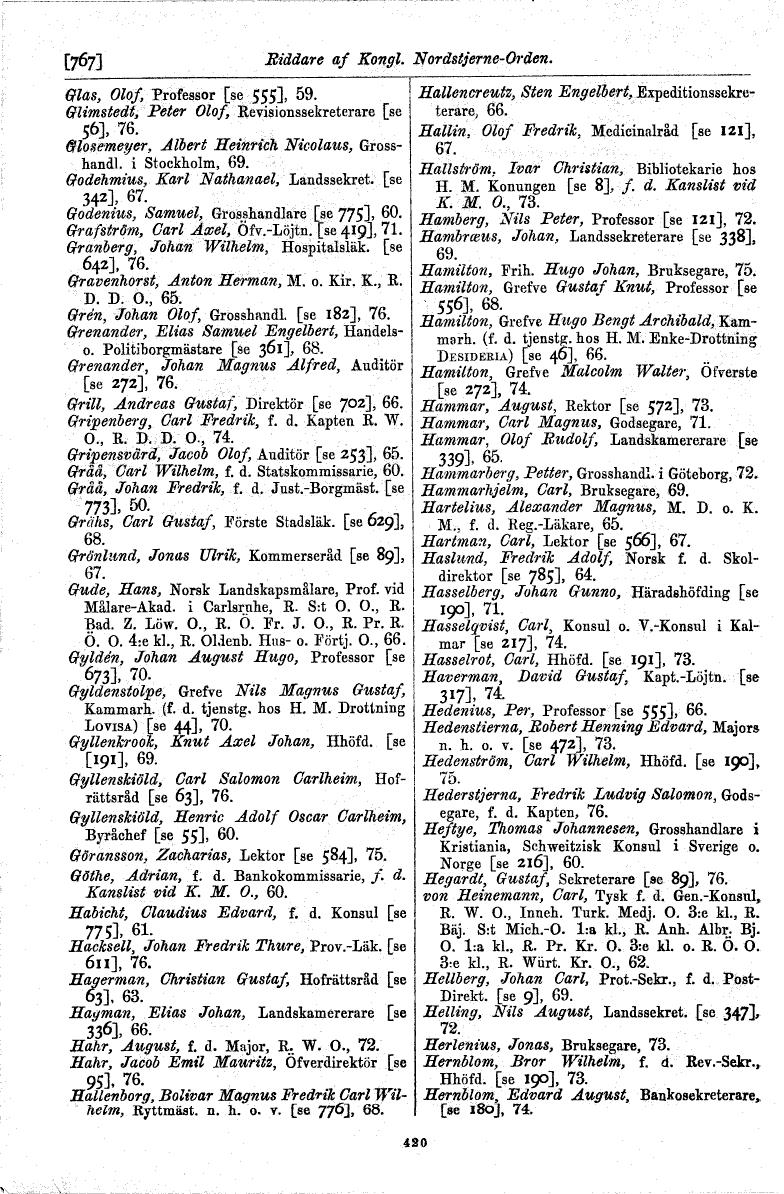 [767] Riddare af Kongl. Nordstjerne-Orden.
Glas, Olof, Professor [se 555], 59.
Glimstedt, Peter Olof, Revisionssekreterare [se
56], 76.
Glosemeyer, Albert Heinrich Nicolaus, Gross-
handl. i Stockholm, 69.
Godehmius, Karl Nathanael, Landssekret. [se
342], 67.
Godenius, Samuel, Grosshandlare [se 775], 60.
Grafström, Carl Axel, Öfv.-Löjtn. [se 419], 71.
Granberg, Johan Wilhelm, Hospitalsläk. [se
642], 76.
Gravenhorst, Anton Herman, M. o. Kir. K., R.
D. D. O., 65.
Grén, Johan Olof, Grosshandl. [se 182], 76.
Grenander, Elias Samuel Engelbert, Handels-
o. Politiborgmästare [se 361], 68.
Grenander, Johan Magnus Alfred, Auditör
[se 272], 76.
Grill, Andreas Gustaf, Direktör [se 702], 66.
Gripenberg, Carl Fredrik, f. d. Kapten R. W.
O., R. D. D. O., 74.
Gripensvärd, Jacob Olof, Auditör [se 253], 65.
Gråå, Carl Wilhelm, f. d. Statskommissarie, 60.
Gråå, Johan Fredrik, f. d. Just.-Borgmäst. [se
773], 50.
Grähs, Carl Gustaf, Förste Stadsläk. [se 629],
68.
Grönlund, Jonas Ulrik, Kommerseråd [se 89],
67.
Gude, Hans, Norsk Landskapsmålare, Prof. vid
Målare-Akad. i Carlsruhe, R. S:t O. O., R.
Bad. Z. Löw. O., R. Ö. Fr. J. O., R. Pr. R.
Ö. O. 4:e kl., R. Oldenb. Hus- o. Förtj. O., 66.
Gyldén, Johan August Hugo, Professor [se
673], 70.
Gyldenstolpe, Grefve Nils Magnus Gustaf,
Kammarh. (f. d. tjenstg. hos H. M. Drottning
LOVISA) [se 44], 70.
Gyllenkrook, Knut Axel Johan, Hhöfd. [se
[191], 69.
Gyllenskiöld, Carl Salomon Carlheim, Hof-
rättsråd [se 63], 76.
Gyllenskiöld, Henric Adolf Oscar Carlheim,
Byråchef [se 55], 60.
Göransson, Zacharias, Lektor [se 584], 75.
Göthe, Adrian, f. d. Bankokommissarie, f. d.
Kanslist vid K. M. O., 60.
Habicht, Claudius Edvard, f. d. Konsul [se
775], 61.
Hacksell, Johan Fredrik Thure, Prov.-Läk. [se
611], 76.
Hagerman, Christian Gustaf, Hofrättsråd [se
63], 63.
Hagman, Elias Johan, Landskamererare [se
336], 66.
Hahr, August, f. d. Major, R. W. O., 72.
Hahr, Jacob Emil Mauritz, Öfverdirektör [se
95], 76.
Hallenborg, Bolivar Magnus Fredrik Carl Wil-
helm, Ryttmäst. n. h. o. v. [se 776], 68.
Hallencreutz, Sten Engelbert, Expeditionssekre-
terare, 66.
Hallin, Olof Fredrik, Medicinalråd [se 121],
67.
Hallström, Ivar Christian, Bibliotekarie hos
H. M. Konungen [se 8], f. d. Kanslist vid
K. M. O., 73.
Hamberg, Nils Peter, Professor [se 121], 72.
Hambræus, Johan, Landssekreterare [se 338],
69.
Hamilton, Frih. Hugo Johan, Bruksegare, 75.
Hamilton, Grefve Gustaf Knut, Professor [se
556], 68.
Hamilton, Grefve Hugo Bengt Archibald, Kam-
marh. (f. d. tjenstg. hos H. M. Enke-Drottning
DESIDERIA) [se 46], 66.
Hamilton, Grefve Malcolm Walter, Öfverste
[se 272], 74.
Hammar, August, Rektor [se 572], 73.
Hammar, Carl Magnus, Godsegare, 71.
Hammar, Olof Rudolf, Landskamererare [se
339], 65.
Hammarberg, Petter, Grosshandl. i Göteborg, 72.
Hammarhjelm, Carl, Bruksegare, 69.
Hartelius, Alexander Magnus, M. D. o. K.
M., f. d. Reg.-Läkare, 65.
Hartman, Carl, Lektor [se 566], 67.
Haslund, Fredrik Adolf, Norsk f. d. Skol-
direktor [se 785], 64.
Hasselberg, Johan Gunno, Häradshöfding [se
190], 71.
Hasselqvist, Carl, Konsul o. V.-Konsul i Kal-
mar [se 217], 74.
Hasselrot, Carl, Hhöfd. [se 191], 73.
Haverman, David Gustaf, Kapt.-Löjtn. [se
317], 74.
Hedenius, Per, Professor [se 555], 66.
Hedenstierna, Robert Henning Edvard, Majors
n. h. o. v. [se 472], 73.
Hedenström, Carl Wilhelm, Hhöfd. [se 190],
75.
Hederstjerna, Fredrik Ludvig Salomon, Gods-
egare, f. d. Kapten, 76.
Heftye, Thomas Johannesen, Grosshandlare i
Kristiania, Schweitzisk Konsul i Sverige o.
Norge [se 216], 60.
Hegardt, Gustaf, Sekreterare [se 89], 76.
von Heinemann, Carl, Tysk f. d. Gen.-Konsul,
R. W. O., Inneh. Turk. Medj. O. 3:e kl., R.
Baj. S:t Mich.-O. 1:a kl., R. Anh. Albr. Bj.
O. 1:a kl., R. Pr. Kr. O. 3:e kl. o. R. Ö. O.
3:e kl., R. Würt. Kr. O., 62.
Hellberg, Johan Carl, Prot.-Sekr., f. d. Post-
Direkt. [se 9], 69.
Helling, Nils August, Landssekret. [se 347],
72.
Herlenius, Jonas, Bruksegare, 73.
Hernblom, Bror Wilhelm, f. d. Rev.-Sekr.,
Hhöfd. [se 190], 73.
Hernblom, Edvard August, Bankosekreterare,
[se 180], 74.
420